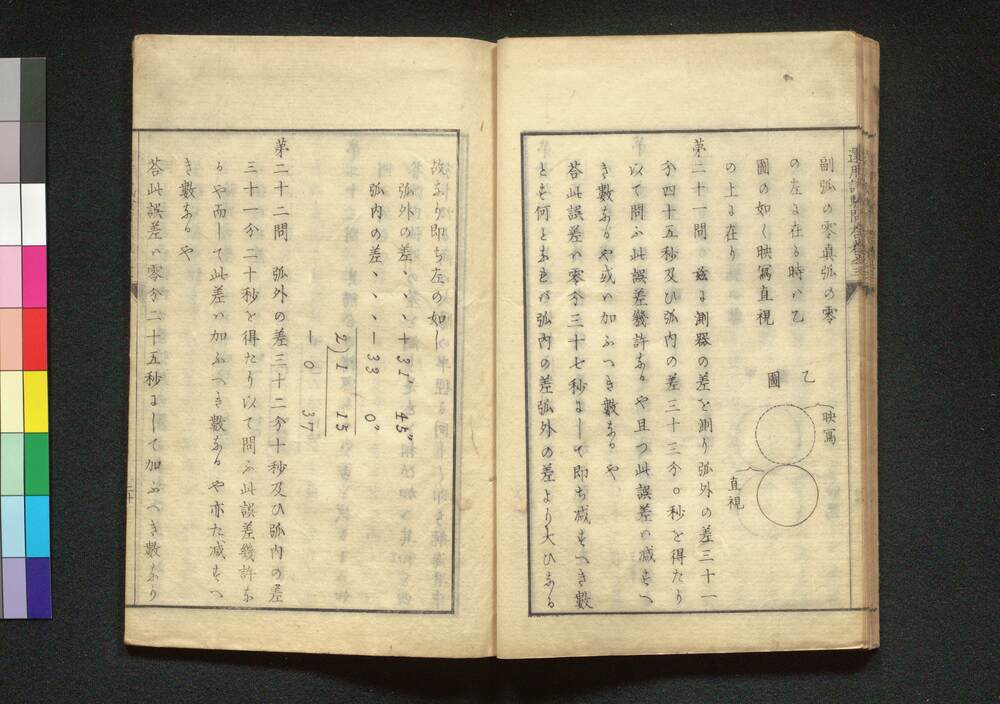 副弧の零眞弧の零
の左に在る時ハ乙
圖の如く映寫直視
の上に在り
乙圖
映寫
直視
第二十一問 茲に測器の差を測り弧外の差三十一
分四十五秒及ひ弧内の差三十三分〇秒を得たり
以て問ふ此誤差幾許なるや且つ此誤差ハ減すへ
き數なるや或ハ加ふへき數なるや
答此誤差ハ零分三十七秒にして即ち减すへき數
とす何となれバ弧内の差弧外の差より大ひなる
故なり即ち左の如し
弧外の差、、、+31′ 45″
弧内の差、、、−33 0″
2) 1 15
− 0 37
第二十二問 弧外の差三十二分十秒及ひ弧内の差
三十一分二十秒を得たり以て問ふ此誤差幾許な
るや而して此差ハ加ふへき數なるや亦た减すへ
き數なるや
答此誤差ハ零分二十五秒にして加ふへき數なり